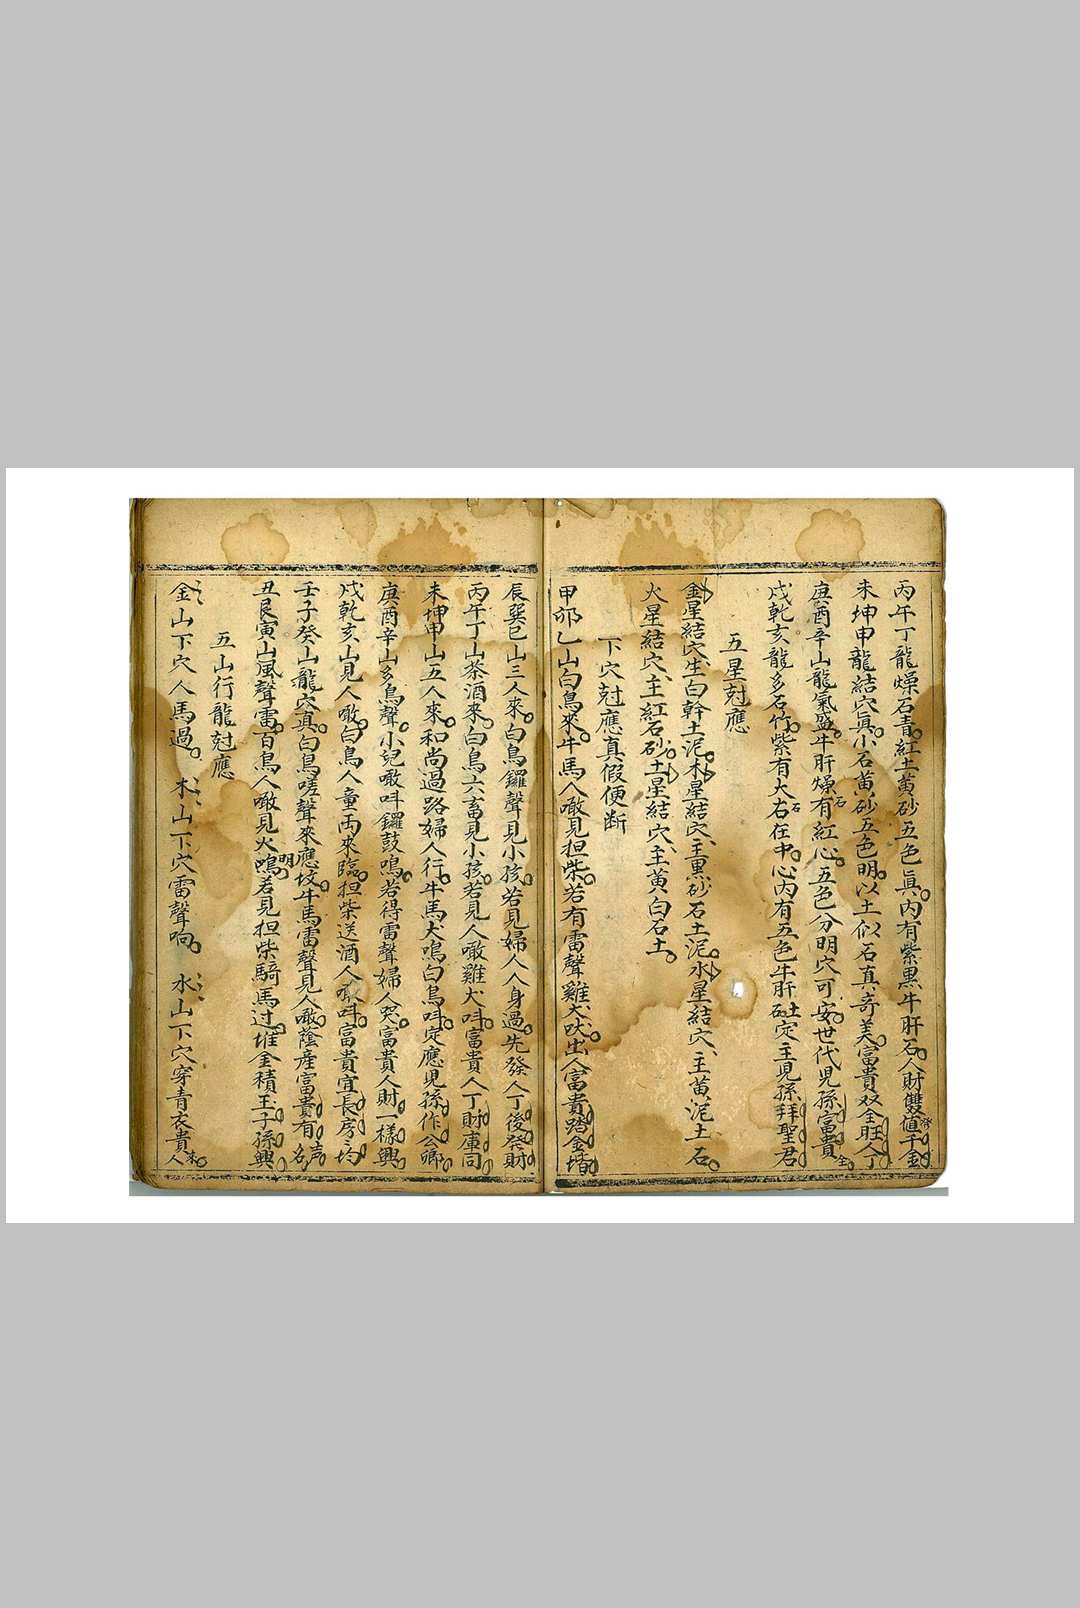 丙午丁龍燥石青紅土黃砂五色真內有紫黑牛肝石人財雙值千金
未坤申龍結穴真小石黃砂五色明以土似石真奇美富貴双全旺人丁
庚酉辛山龍氣盛牛肝燥石有紅心五色分明穴可安世代児孫富貴全
戌乾亥龍多石竹紫有大石在中心內有五色牛肝土石定主児孫拜聖君
五星尅應
金星結穴生白幹土泥木星結穴主黑砂石土泥水星結穴主黃泥土石
火星結穴主紅石砂土星結穴主黃白石土
下穴尅應真假便断
甲卯乙山白鳥來牛馬人噉見担柴若有雷聲雞犬吠出人富貴踏金堦
辰巽巳山三人來白鳥鑼聲見小孩若見婦人人身過先發人丁後發財
丙午丁山茶酒來白鳥六畜見小孩若見人噉雞犬呌富貴人丁財庫司
未坤申山五人來和尚過路婦人行牛馬犬鳴白鳥呌定應児孫作公卿
庚酉辛山多鳥聲小兒噉呌鑼鼓鳴若得雷聲婦人哭富貴人財一樣興
戌乾亥山見人噉白鳥人童両來臨担柴送酒人呌富貴宜長房房均
壬子癸山龍穴真白鳥嗟聲來應坟牛馬雷聲見人噉蔭產富貴有声名
丑艮寅山風聲雷百鳥人噉見火明若見担柴騎馬过堆金積玉子孫興
五山行龍尅應
金山下穴人馬過　木山下穴雷聲响　水山下穴穿青衣貴人來